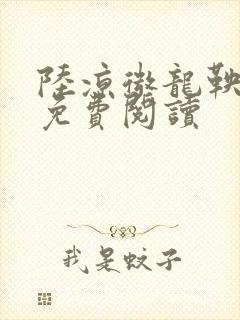 陸涼微龍鞅
免費閱讀
我是蚊子